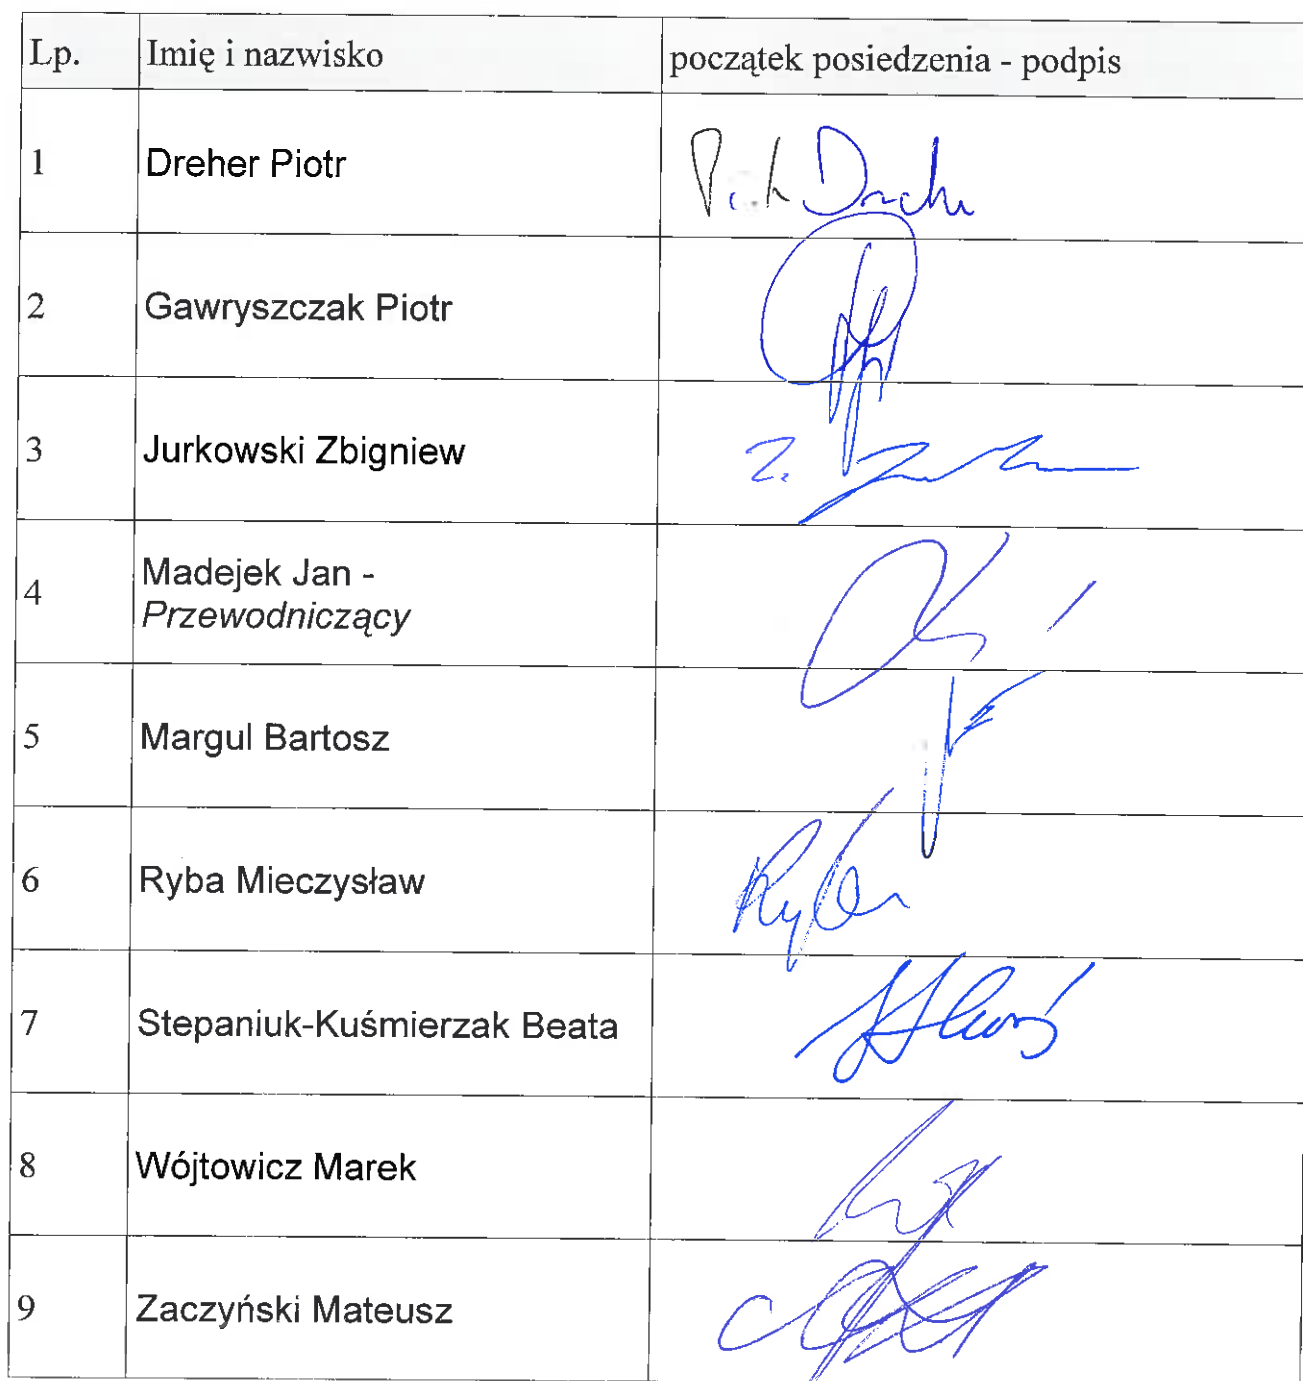 Lp. Imię i nazwisko początek posiedzenia - podpis
1 Dreher Piotr
2 Gawryszczak Piotr
3 Jurkowski Zbigniew Z.
4 Madejek Jan -
Przewodniczący
5 Margul Bartosz
6 Ryba Mieczysław Ryba
7 Stepaniuk-Kuśmierzak Beata
8 Wójtowicz Marek
9 Zaczyński Mateusz